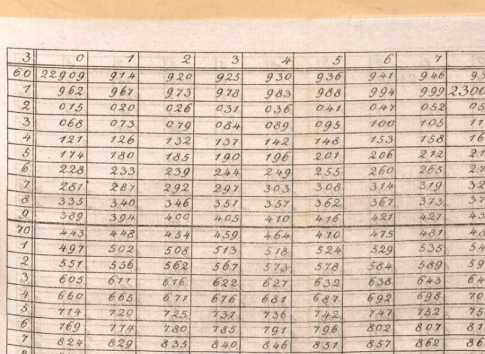 3 0 1 2 3 4 5 6 7
60 22909 914 920 925 930 936 941 946 95
1 962 967 973 978 983 988 994 999 2300
2 015 020 026 031 036 041 047 052 05
3 068 073 079 084 089 095 100 105 11
4 121 126 132 137 142 148 153 158 16
5 174 180 185 190 196 201 206 212 21
6 228 233 239 244 249 255 260 265 27
7 281 287 292 297 303 308 314 319 32
8 335 340 346 351 357 362 367 373 37
9 389 394 400 405 410 416 421 427 43
70 443 448 454 459 464 470 475 481 48
1 497 502 508 513 518 524 529 535 54
2 551 556 562 567 573 578 584 589 59
3 605 611 616 622 627 632 638 643 64
4 660 665 671 676 681 687 692 698 70
5 714 720 725 731 736 742 747 752 75
6 769 774 780 785 791 796 802 807 81
7 824 829 835 840 846 851 857 862 86